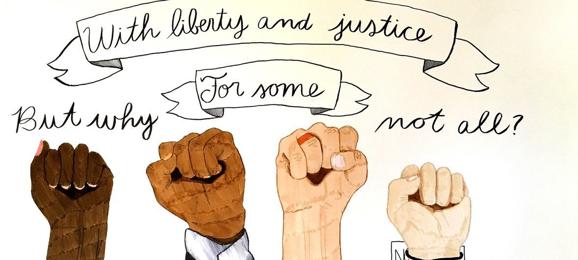 With liberty and justice
For some
But why not all?